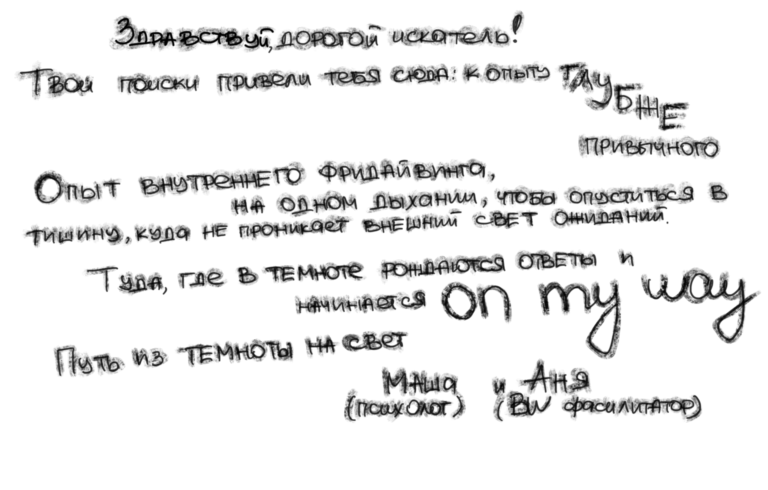 Здравствуй, дорогой искатель!
Твои поиски привели тебя сюда: к опыту глубже
привычного
Опыт внутреннего фридайвинга,
на одном дыхании, чтобы опуститься в
тишину, куда не проникает внешний свет ожиданий.
Туда, где в темноте рождаются ответы и
начинается on my way
Путь из темноты на свет
Маша и Аня
(психолог) (BW фасилитатор)